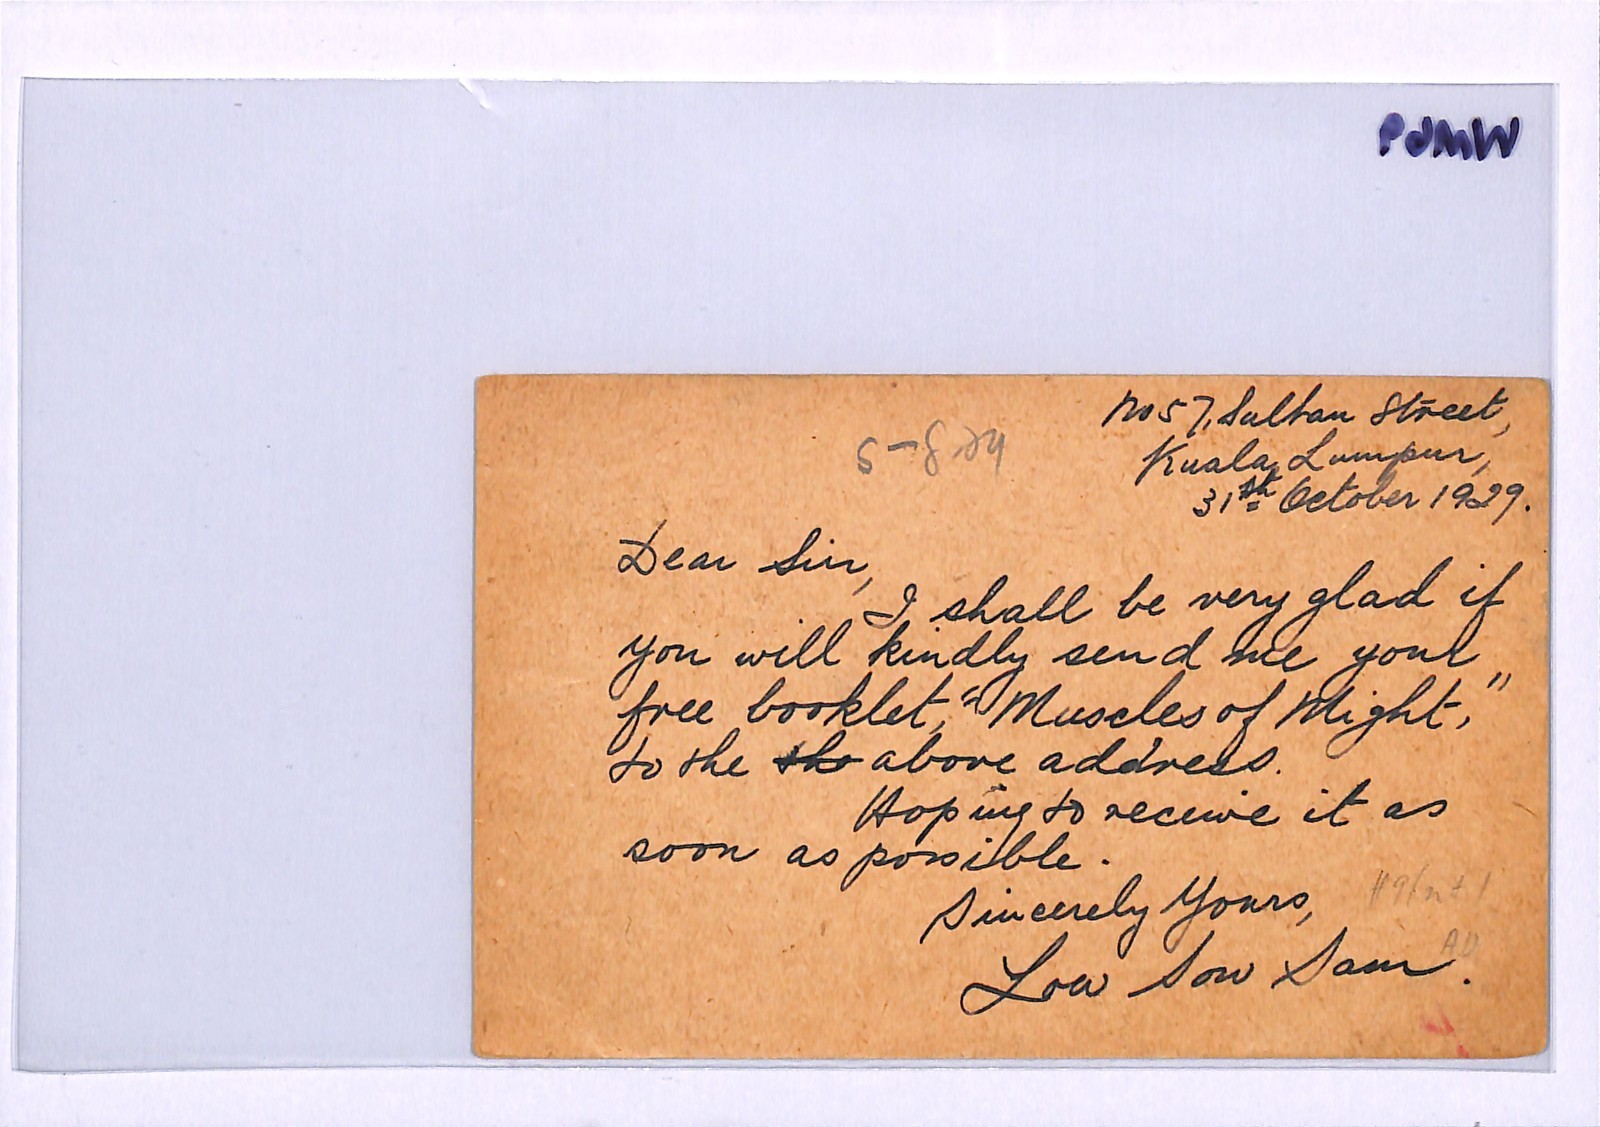 PJMW
No 57, Sultan Street,
Kuala Lumpur,
31th October 1929.
Dear Sir,
I shall be very glad if
you will kindly send me your
free booklet, "Muscles of Might,"
to the the above address.
Hoping to receive it as
soon as possible.
Sincerely Yours,
Low Sow Sam.